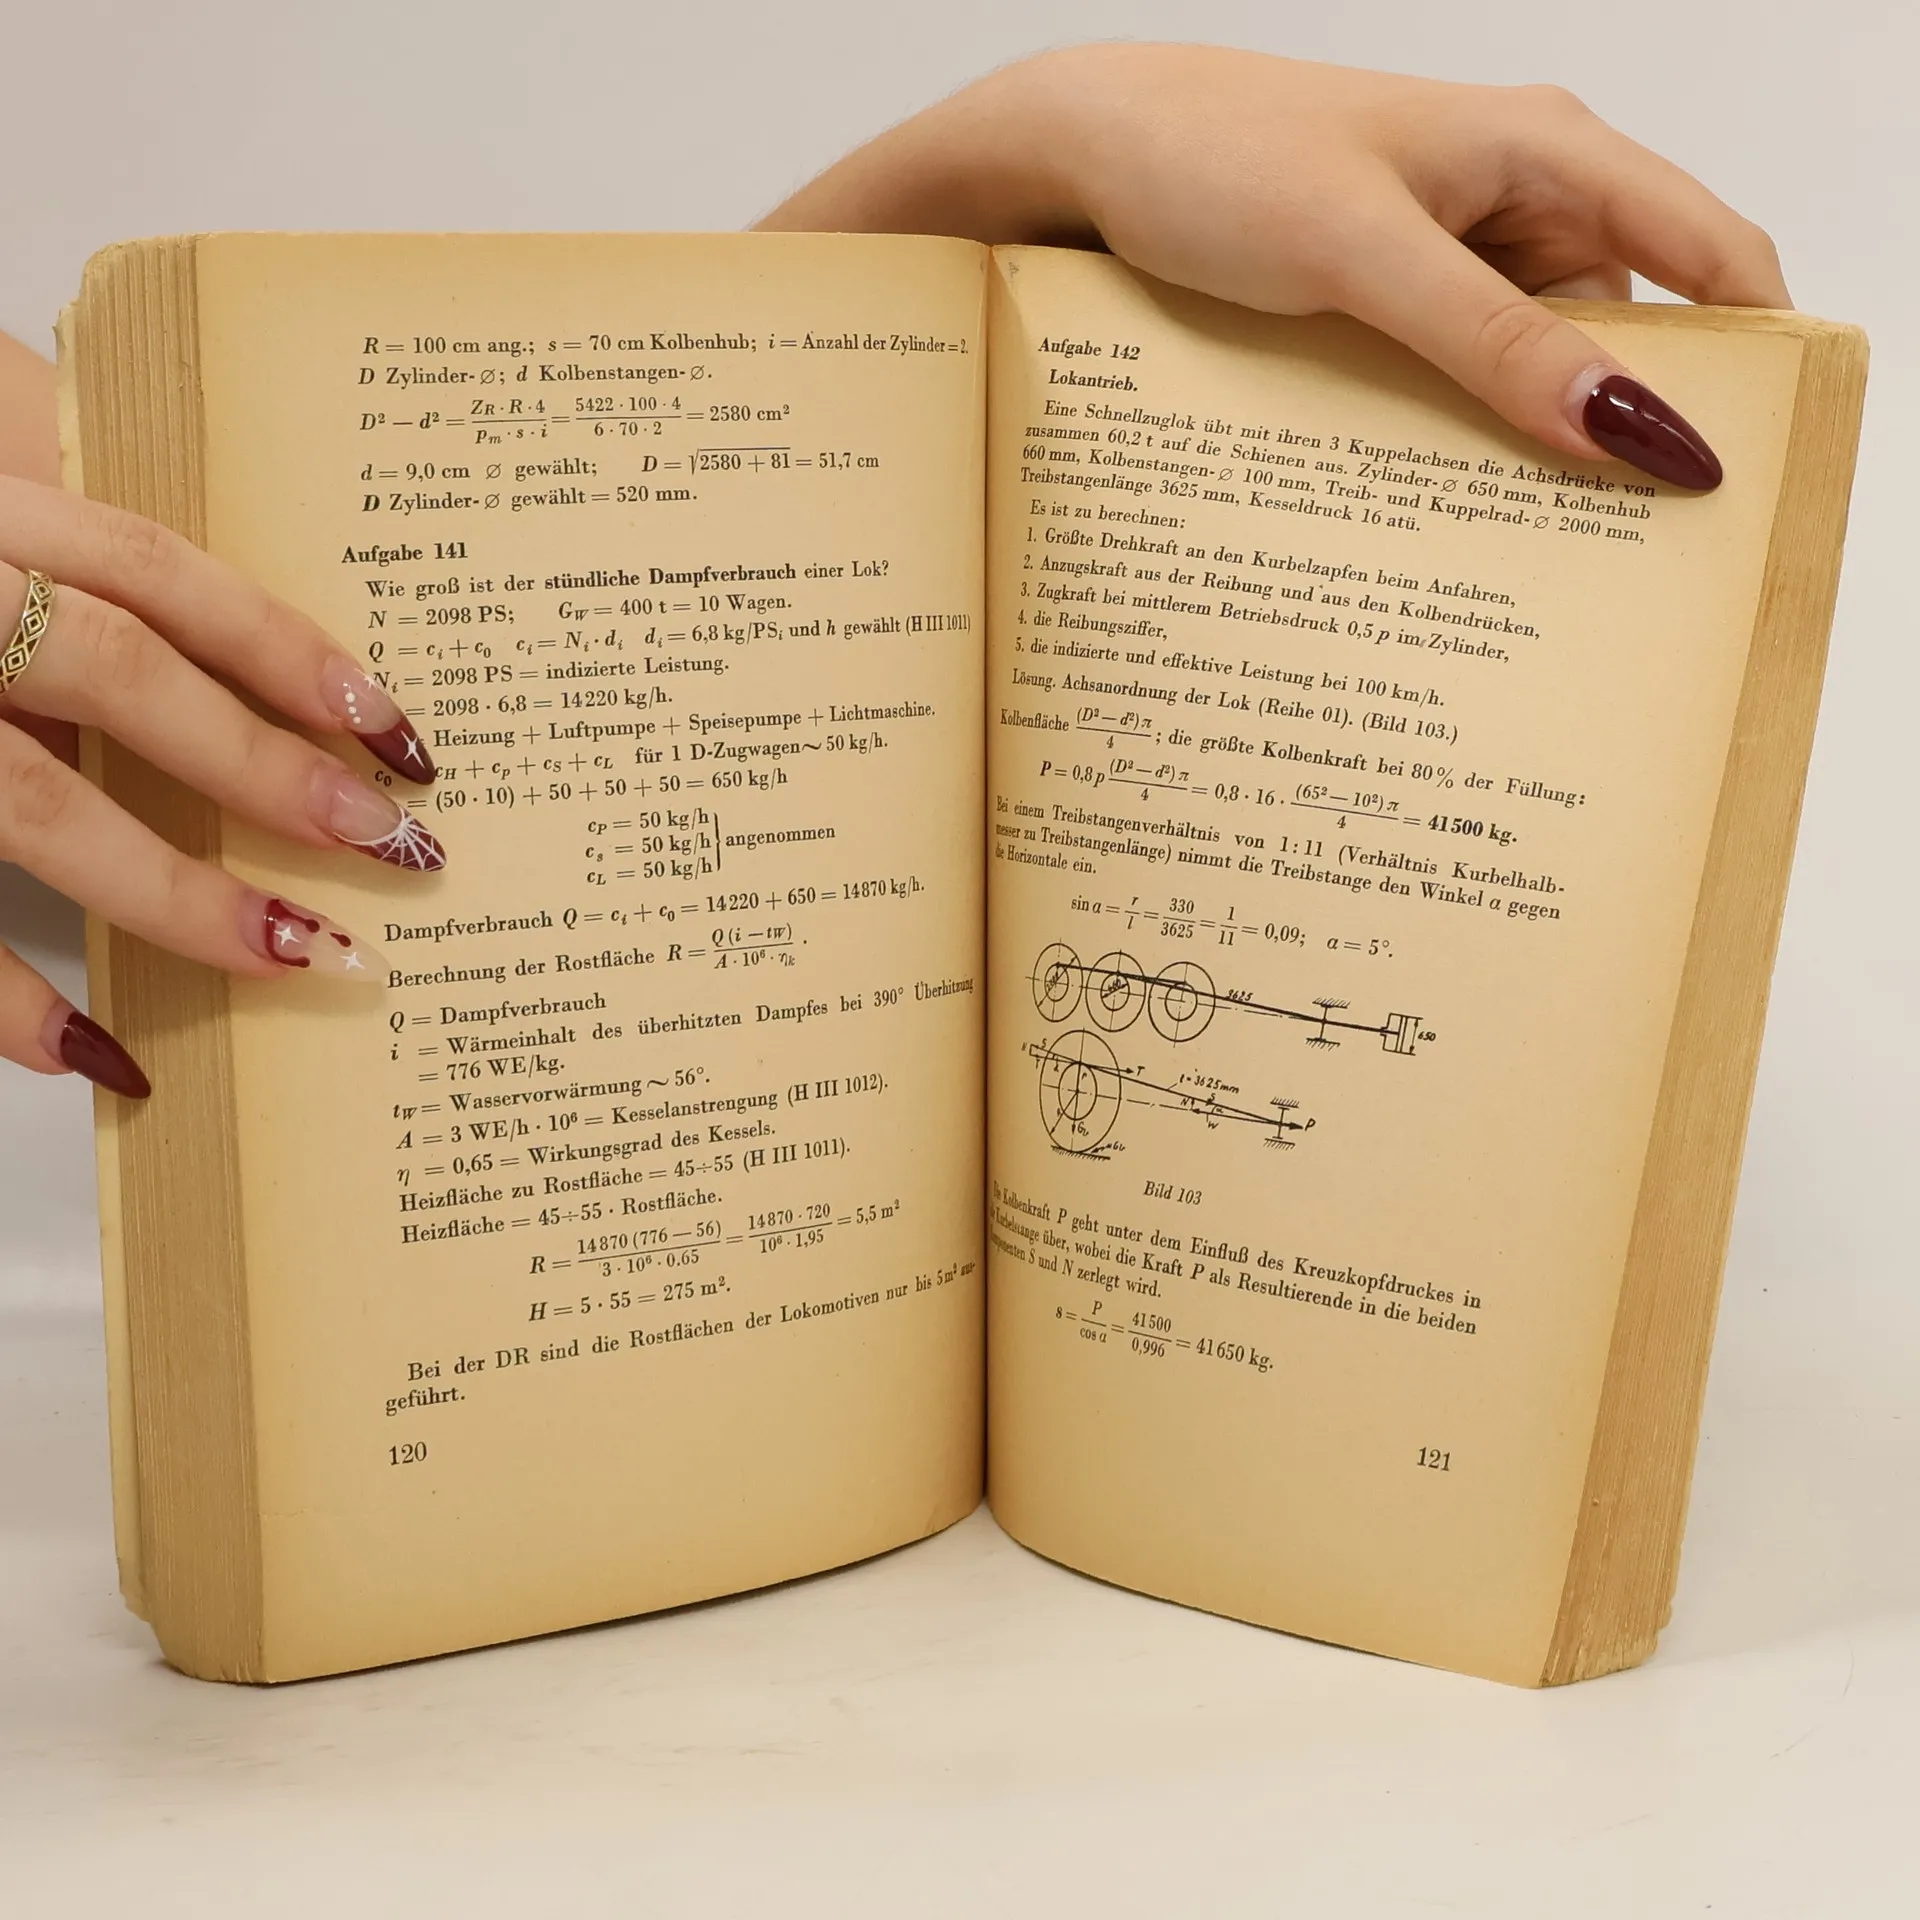 R = 100 cm ang.; s = 70 cm Kolbenhub; i = Anzahl der Zylinder = 2.
D Zylinder-∅; d Kolbenstangen-∅.
D² — d² = ZR · R · 4 / pm · s · i = 5422 · 100 · 4 / 6 · 70 · 2 = 2580 cm²
d = 9,0 cm ∅ gewählt; D = √2580 + 81 = 51,7 cm
D Zylinder-∅ gewählt = 520 mm.
Aufgabe 141
Wie groß ist der stündliche Dampfverbrauch einer Lok?
N = 2098 PS; GW = 400 t = 10 Wagen.
Q = ci + c0 ci = Ni · di di = 6,8 kg/PSi und h gewählt (H III 1011)
Ni = 2098 PS = indizierte Leistung.
= 2098 · 6,8 = 14220 kg/h.
Heizung + Luftpumpe + Speisepumpe + Lichtmaschine.
c0 cH + cp + cS + cL für 1 D-Zugwagen ~ 50 kg/h.
= (50 · 10) + 50 + 50 + 50 = 650 kg/h
cP = 50 kg/h
cs = 50 kg/h } angenommen
cL = 50 kg/h
Dampfverbrauch Q = ci + c0 = 14220 + 650 = 14870 kg/h.
Berechnung der Rostfläche R = Q (i — tW) / A · 10⁶ · ηk .
Q = Dampfverbrauch
i = Wärmeinhalt des überhitzten Dampfes bei 390° Überhitzung
= 776 WE/kg.
tW = Wasservorwärmung ~ 56°.
A = 3 WE/h · 10⁶ = Kesselanstrengung (H III 1012).
η = 0,65 = Wirkungsgrad des Kessels.
Heizfläche zu Rostfläche = 45÷55 (H III 1011).
Heizfläche = 45÷55 · Rostfläche.
R = 14870 (776 — 56) / 3 · 10⁶ · 0.65 = 14870 · 720 / 10⁶ · 1,95 = 5,5 m²
H = 5 · 55 = 275 m².
Bei der DR sind die Rostflächen der Lokomotiven nur bis 5 m² aus-
geführt.
120
Aufgabe 142
Lokantrieb.
Eine Schnellzuglok übt mit ihren 3 Kuppelachsen die Achsdrücke von
zusammen 60,2 t auf die Schienen aus. Zylinder-∅ 650 mm, Kolbenhub
660 mm, Kolbenstangen-∅ 100 mm, Treib- und Kuppelrad-∅ 2000 mm,
Treibstangenlänge 3625 mm, Kesseldruck 16 atü.
Es ist zu berechnen:
1. Größte Drehkraft an den Kurbelzapfen beim Anfahren,
2. Anzugskraft aus der Reibung und aus den Kolbendrücken,
3. Zugkraft bei mittlerem Betriebsdruck 0,5 p im Zylinder,
4. die Reibungsziffer,
5. die indizierte und effektive Leistung bei 100 km/h.
Lösung. Achsanordnung der Lok (Reihe 01). (Bild 103.)
Kolbenfläche (D² — d²) π / 4 ; die größte Kolbenkraft bei 80% der Füllung:
P = 0,8 p (D² — d²) π / 4 = 0,8 · 16 · (65² — 10²) π / 4 = 41500 kg.
Bei einem Treibstangenverhältnis von 1 : 11 (Verhältnis Kurbelhalb-
messer zu Treibstangenlänge) nimmt die Treibstange den Winkel α gegen
die Horizontale ein.
sin α = r / l = 330 / 3625 = 1 / 11 = 0,09; α = 5°.
3625
650
S
T
l = 3625 mm
N
S
α
W
P
Bild 103
Die Kolbenkraft P geht unter dem Einfluß des Kreuzkopfdruckes in
die Kurbelstange über, wobei die Kraft P als Resultierende in die beiden
Komponenten S und N zerlegt wird.
s = P / cos α = 41500 / 0,996 = 41650 kg.
121